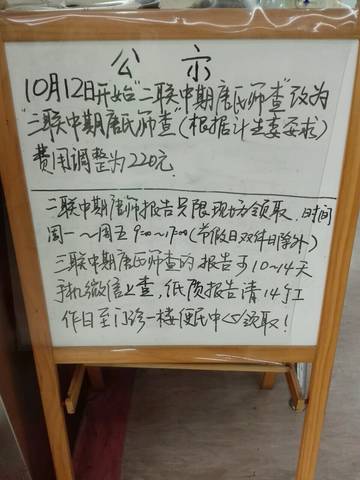 公示
10月12日开始"二联"中期唐氏师查"改为
"三联中期唐氏师查"(根据计生委要求)
费用调整为220元.
二联中期唐师报告只限现场领取,时间
周一~周五 9:00~17:00(节假日双休日除外)
三联中期唐氏师查的报告于10~14天
手机微信上查,纸质报告请14个工
作日至门诊一楼便民中心领取!